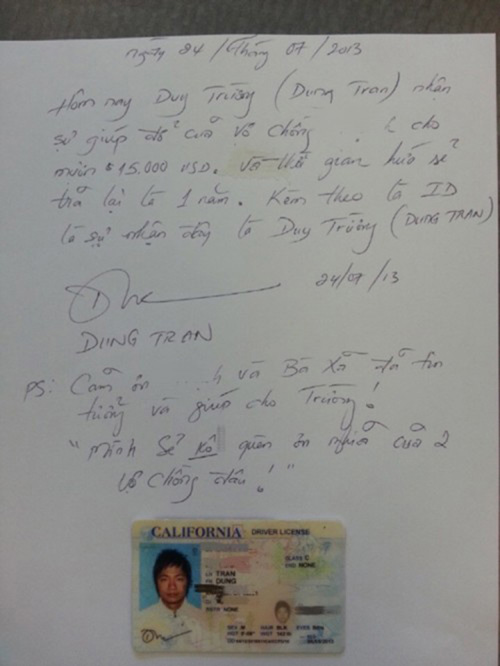 ngày 24 / tháng 07 / 2013
Hôm nay Duy Trường (Dung Tran) nhận
sự giúp đỡ của vợ chồng ... h cho
mượn $15.000 USD. Và thời gian hứa sẽ
trả lại là 1 năm. Kèm theo là ID
là sự nhận đây là Duy Trường (DUNG TRAN)
24/07/13
DUNG TRAN
PS: Cảm ơn ...h và Bà Xã đã tin
tưởng và giúp cho Trường!
"Mình sẽ kô quên ơn nghĩa của 2
vợ chồng đâu!"
CALIFORNIA DRIVER LICENSE
CLASS C
END NONE
TRAN
DUNG
RSTR NONE